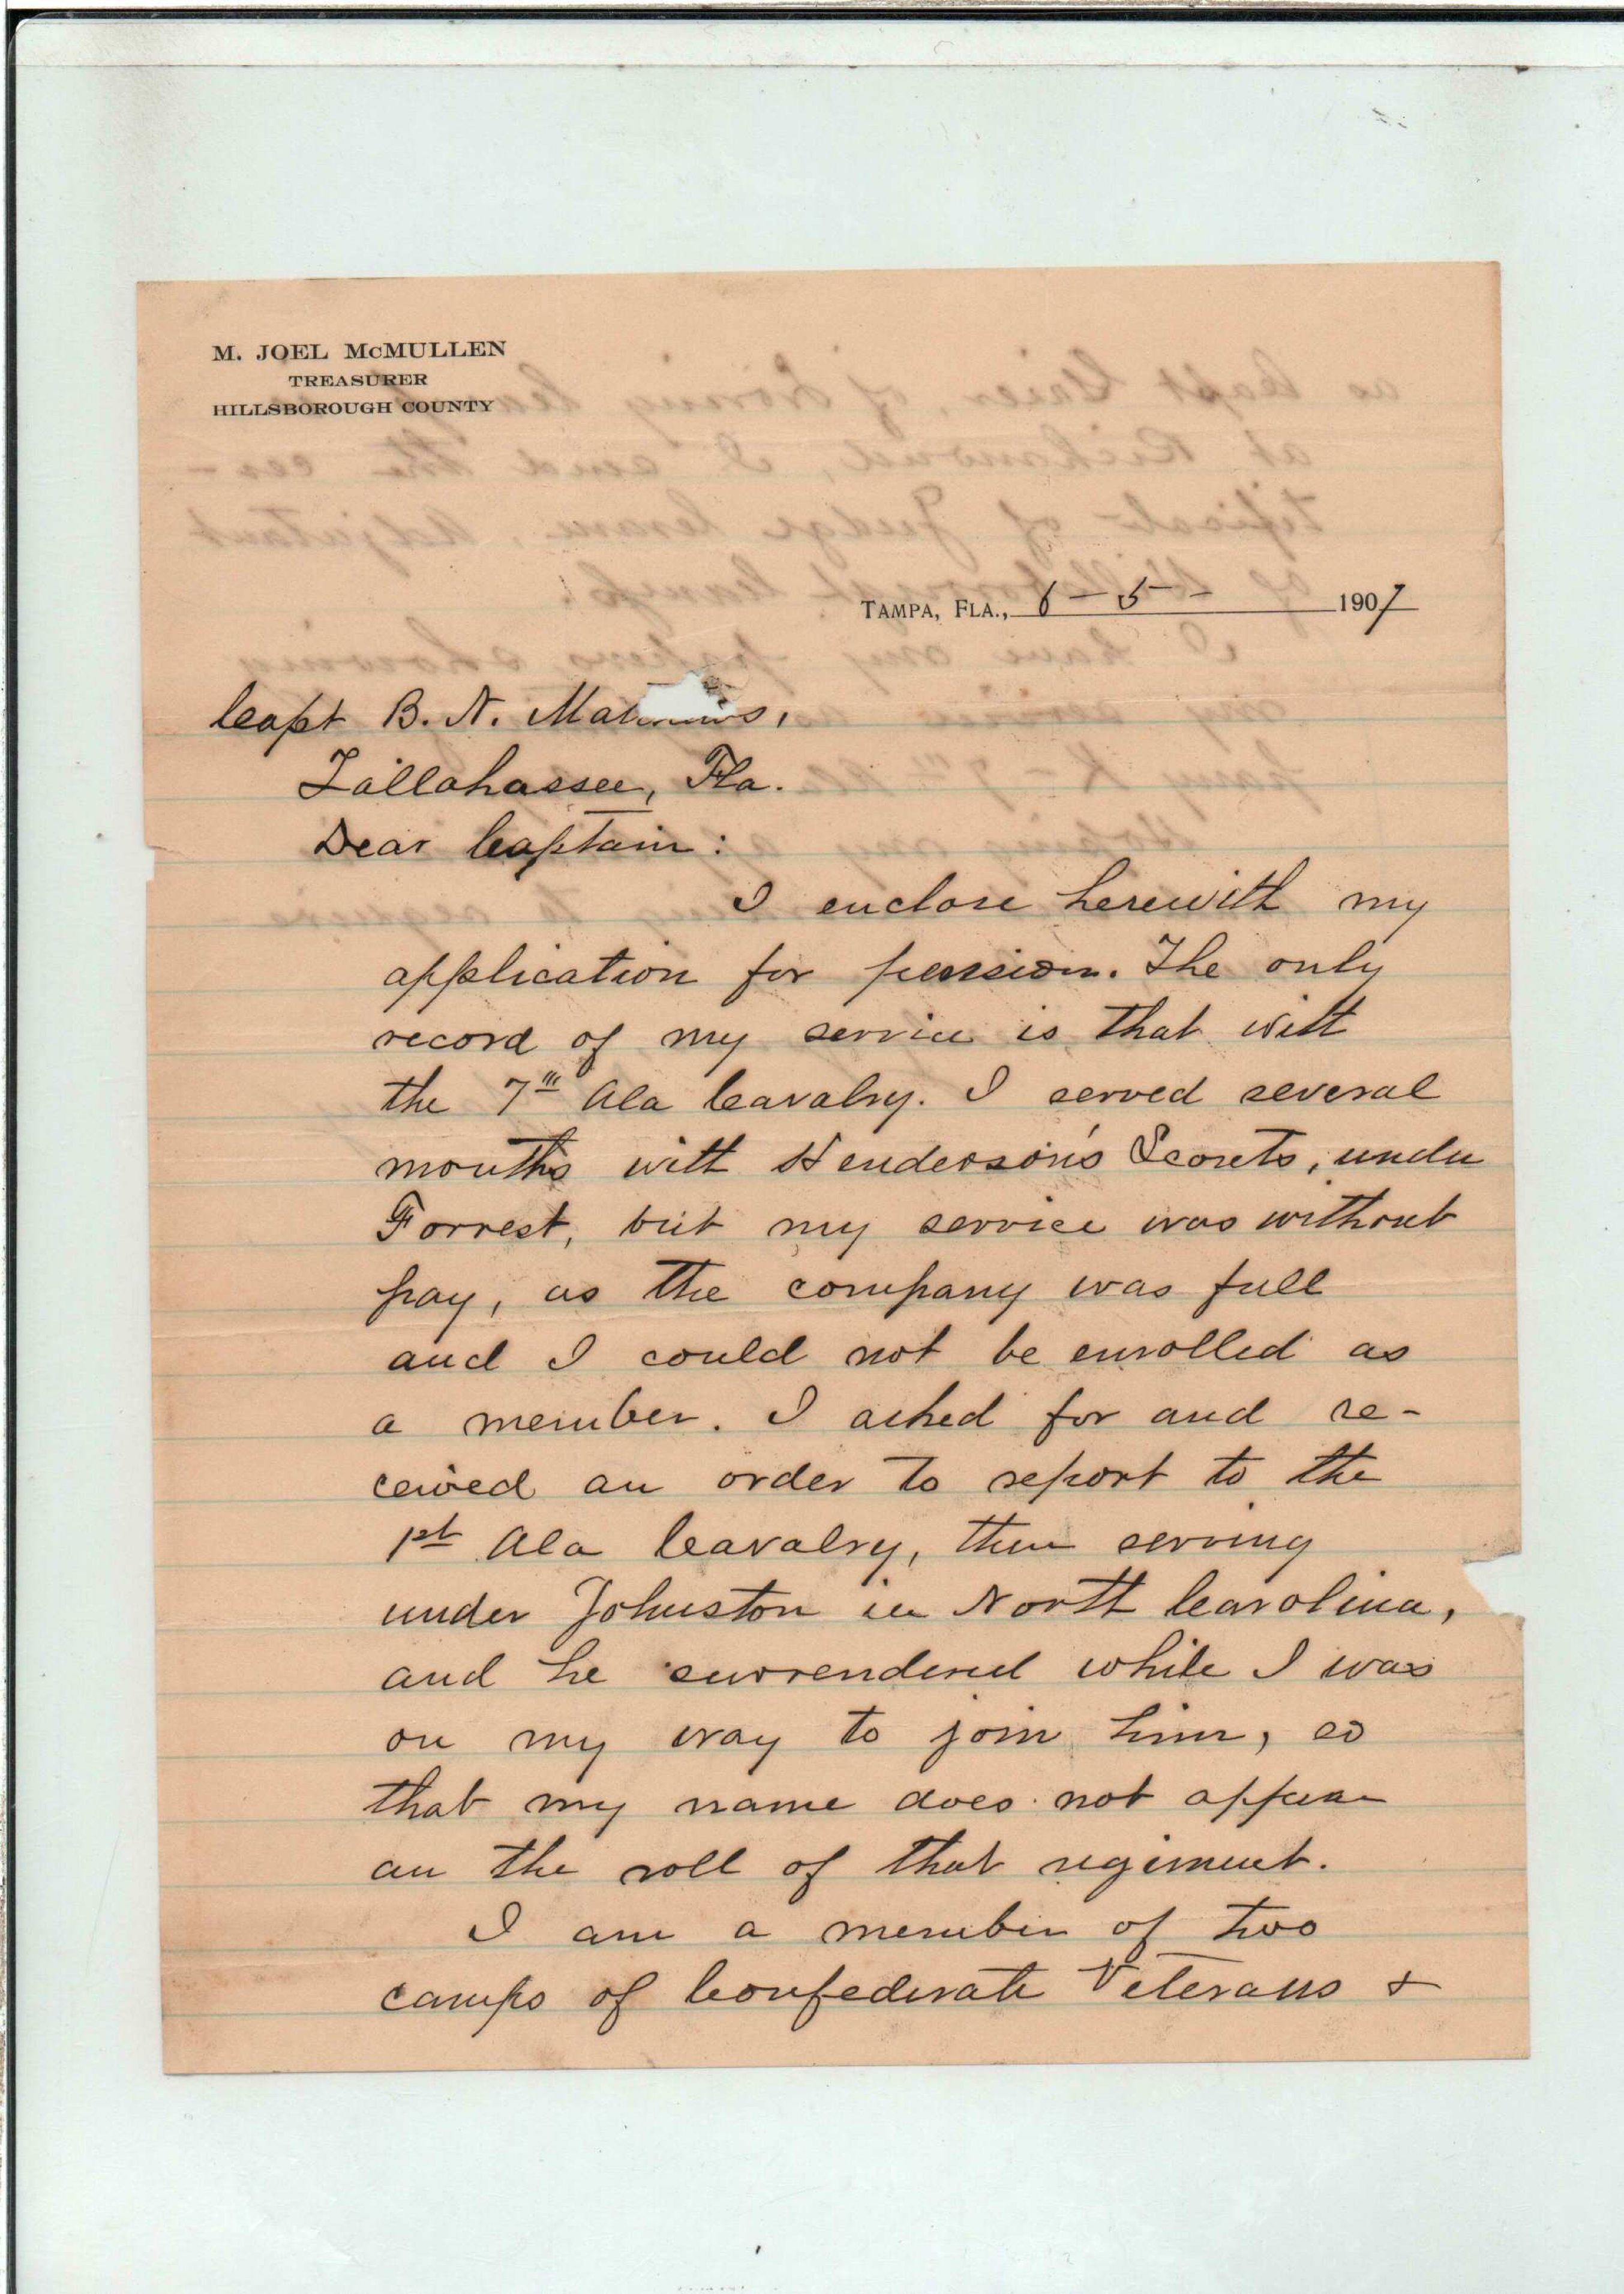 M. JOEL MCMULLEN
TREASURER
HILLSBOROUGH COUNTY
TAMPA, FLA., 6 – 5 – 1907
Capt B. N.
Tallahassee, Fla.
Dear Captain:
I enclose herewith my
application for pension. The only
record of my service is that with
the 7th Ala Cavalry. I served several
months with Henderson's Scouts, under
Forrest, but my service was without
pay, as the company was full
and I could not be enrolled as
a member. I asked for and re-
ceived an order to report to the
1st Ala Cavalry, then serving
under Johnston in North Carolina,
and he surrendered while I was
on my way to join him, so
that my name does not appear
on the roll of that regiment.
I am a member of two
camps of Confederate Veterans &